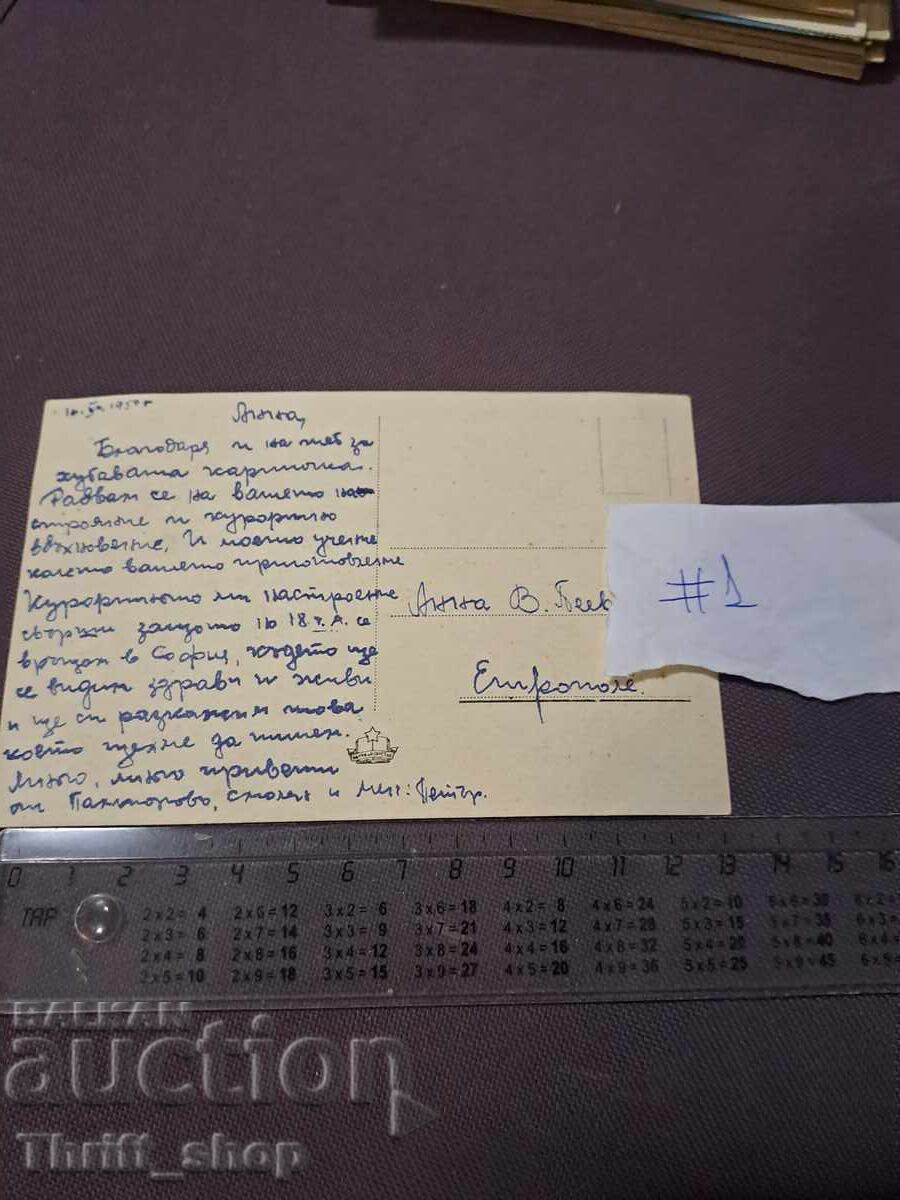 Анна,
Благодаря и на теб за
хубавата картичка.
Радвам се на вашето на-
строяние и курортно
вдъхновение. И моето учение
както вашето приготовление
Курортното ми настроение
свърши защото на 18 т.м. се
връщам в София, където ще
се видим здрави и живи
и ще си разкажем това
което щяхме да пишем.
Много, много привети
от Пампорово, Смолян и мен: Петър.
Анна В. Пеев
Етрополе.
#1
0 1 2 3 4 5 6 7 8 9 10 11 12 13 14 15 16
TAP
2x2=4 2x6=12 3x2=6 3x6=18 4x2=8 4x6=24 5x2=10 5x6=30 6x2
2x3=6 2x7=14 3x3=9 3x7=21 4x3=12 4x7=28 5x3=15 5x7=35 6x3
2x4=8 2x8=16 3x4=12 3x8=24 4x4=16 4x8=32 5x4=20 5x8=40 6x4
2x5=10 2x9=18 3x5=15 3x9=27 4x5=20 4x9=36 5x5=25 5x9=45 6x5
BALKAN
auction
Thriff_shop